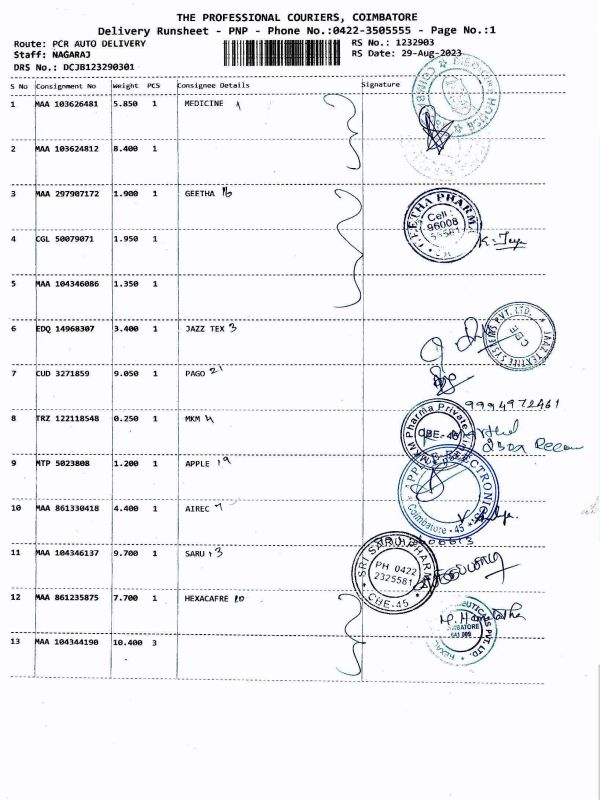 THE PROFESSIONAL COURIERS, COIMBATORE
Delivery Runsheet - PNP - Phone No.:0422-3505555 - Page No.:1
Route: PCR AUTO DELIVERY RS No.: 1232903
Staff: NAGARAJ RS Date: 29-Aug-2023
DRS No.: DCJB123290301
S No Consignment No Weight PCS Consignee Details Signature
1 MAA 103626481 5.850 1 MEDICINE
2 MAA 103624812 8.400 1
3 MAA 297907172 1.900 1 GEETHA
GEETHA PHARMA
Cell :
96008
4 CGL 50079071 1.950 1
5 MAA 104346086 1.350 1
6 EDQ 14968307 3.400 1 JAZZ TEX 3
JAAZ TEXTILE SYSTEMS PVT. LTD.
CBE
7 CUD 3271859 9.050 1 PAGO 21
9994972461
8 TRZ 122118548 0.250 1 MKM 4
MKM Pharma Private
CBE-45
9 MTP 5023808 1.200 1 APPLE 19
APPLE ELECTRONICS
Coimbatore - 45
10 MAA 861330418 4.400 1 AIREC 7
11 MAA 104346137 9.700 1 SARU 13
SRI SARU PHARMA
PH 0422
2325581
CBE-45
12 MAA 861235875 7.700 1 HEXACAFRE 10
13 MAA 104344190 10.400 3